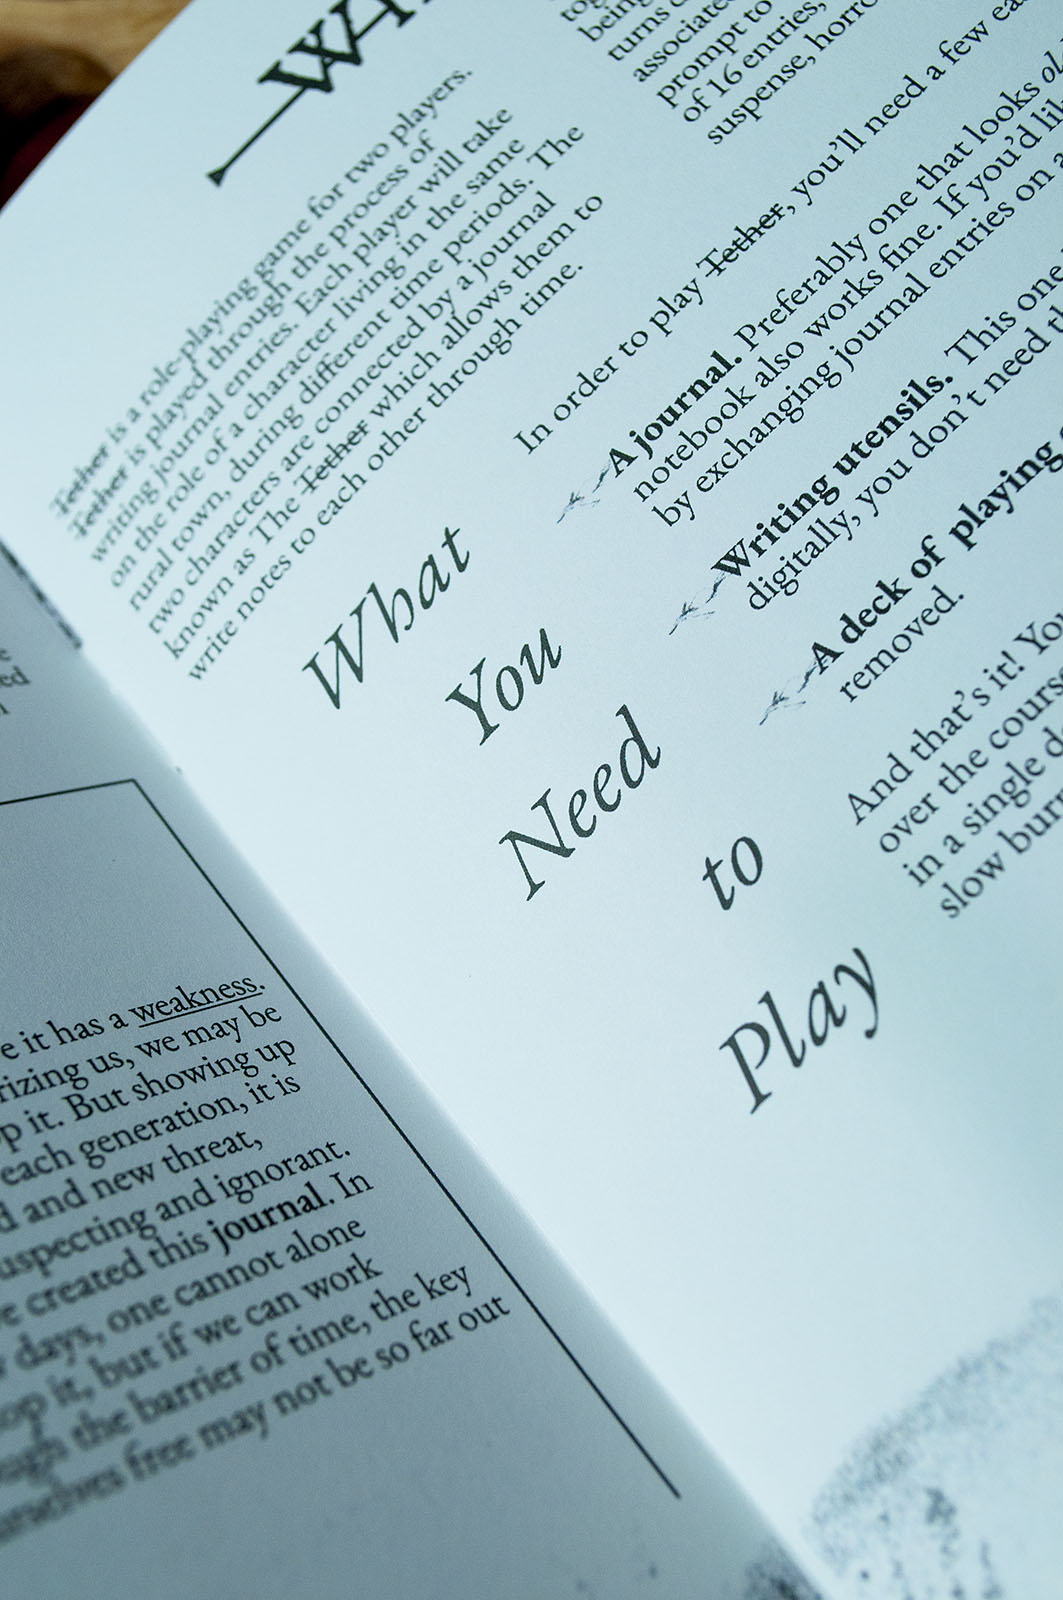 e it has a weakness.
rizing us, we may be
p it. But showing up
each generation, it is
d and new threat,
uspecting and ignorant.
e created this journal. In
days, one cannot alone
op it, but if we can work
ough the barrier of time, the key
urselves free may not be so far out
Tether is a role-playing game for two players.
Tether is played through the process of
writing journal entries. Each player will take
on the role of a character living in the same
rural town, during different time periods. The
two characters are connected by a journal
known as The Tether which allows them to
write notes to each other through time.
being
turns
associated
prompt to
of 16 entries,
suspense, horro
What
You
Need
to
Play
In order to play Tether, you'll need a few ea
A journal. Preferably one that looks ol
notebook also works fine. If you'd lik
by exchanging journal entries on a
Writing utensils. This one
digitally, you don't need th
A deck of playing
removed.
And that's it! You
over the course
in a single d
slow burn